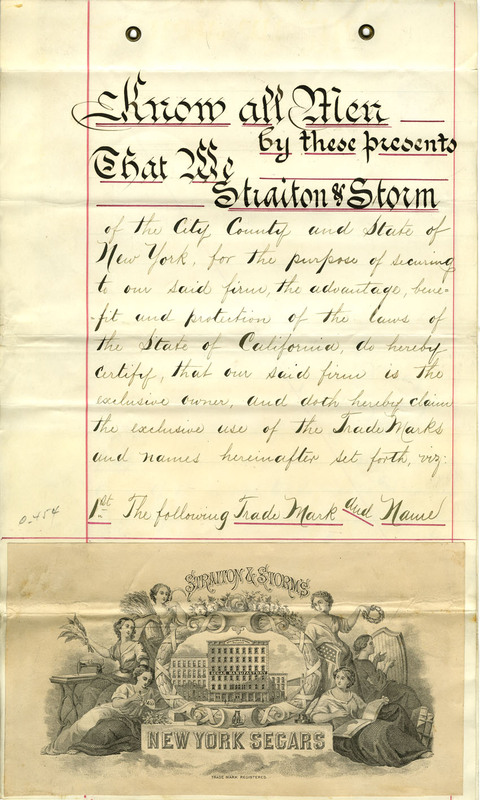 Know all Men
by these presents
That We
Straiton & Storm
of the City County and State of
New York, for the purpose of securing
to our said firm, the advantage, bene-
-fit and protection of the laws of
the State of California, do hereby
certify, that our said firm is the
exclusive owner, and doth hereby claim
the exclusive use of the Trade Marks
and names hereinafter set forth, viz:
0-454
1st The following Trade Mark and Name
STRAITON & STORM'S
SEGAR MANUFACTORY
NEW YORK SEGARS
TRADE MARK REGISTERED.